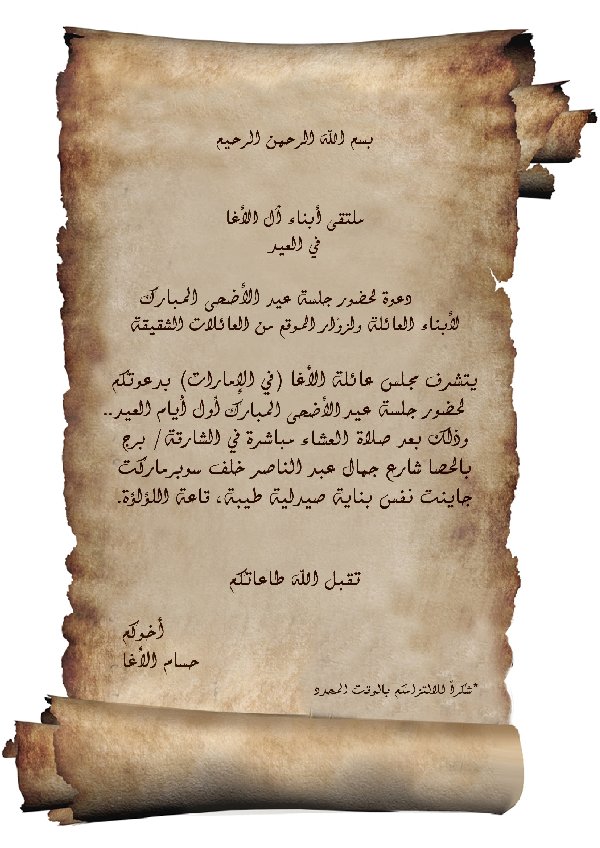 بسم اللّه الرحمن الرحيم
ملتقى أبناء آل الأغا
في العيد
دعوة لحضور جلسة عيد الأضحى المبارك
لأبناء العائلة ولزوار الموقع من العائلات الشقيقة
يتشرف مجلس عائلة الأغا (في الإمارات) بدعوتكم
لحضور جلسة عيد الأضحى المبارك أول أيام العيد..
وذلك بعد صلاة العشاء مباشرة في الشارقة/ برج
بالحصا شارع جمال عبد الناصر خلف سوبرماركت
جاينت نفس بناية صيدلية طيبة، قاعة اللؤلؤة.
تقبل اللّه طاعاتكم
أخوكم
حسام الأغا
*شكراً لالتزامكم بالوقت المحدد